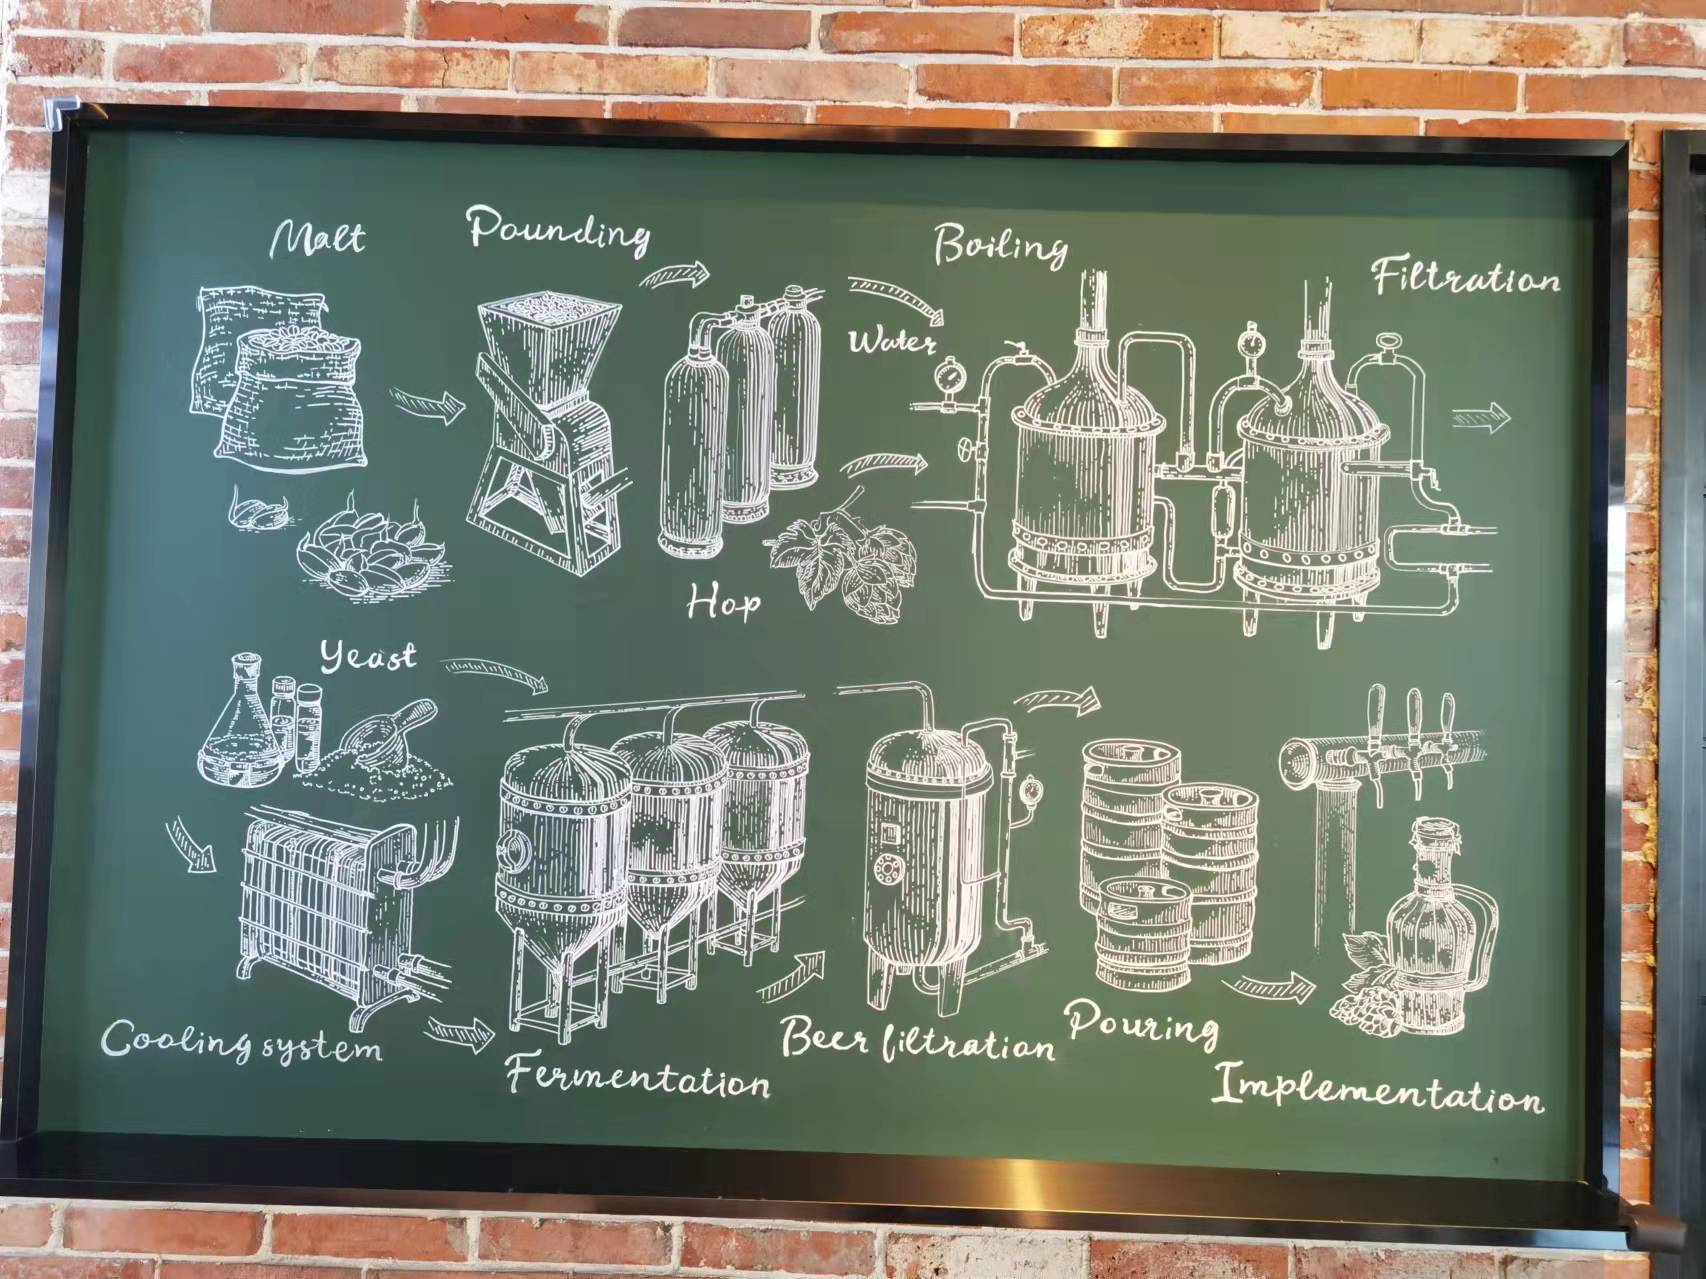 Malt
Pounding
Boiling
Filtration
Water
Hop
Yeast
Cooling system
Fermentation
Beer filtration
Pouring
Implementation